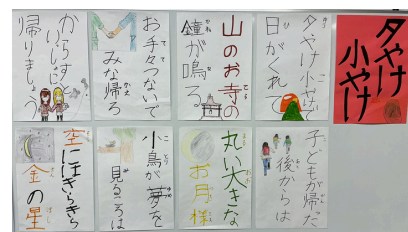 夕やけ
小やけ
夕やけ小やけで
日がくれて
山のお寺の
鐘が鳴る
お手々つないで
みな帰ろ
からすといっしょに
帰りましょう
子どもが帰った
後からは
丸い大きな
お月様
小鳥が夢を
見るころは
空にはきらきら
金の星